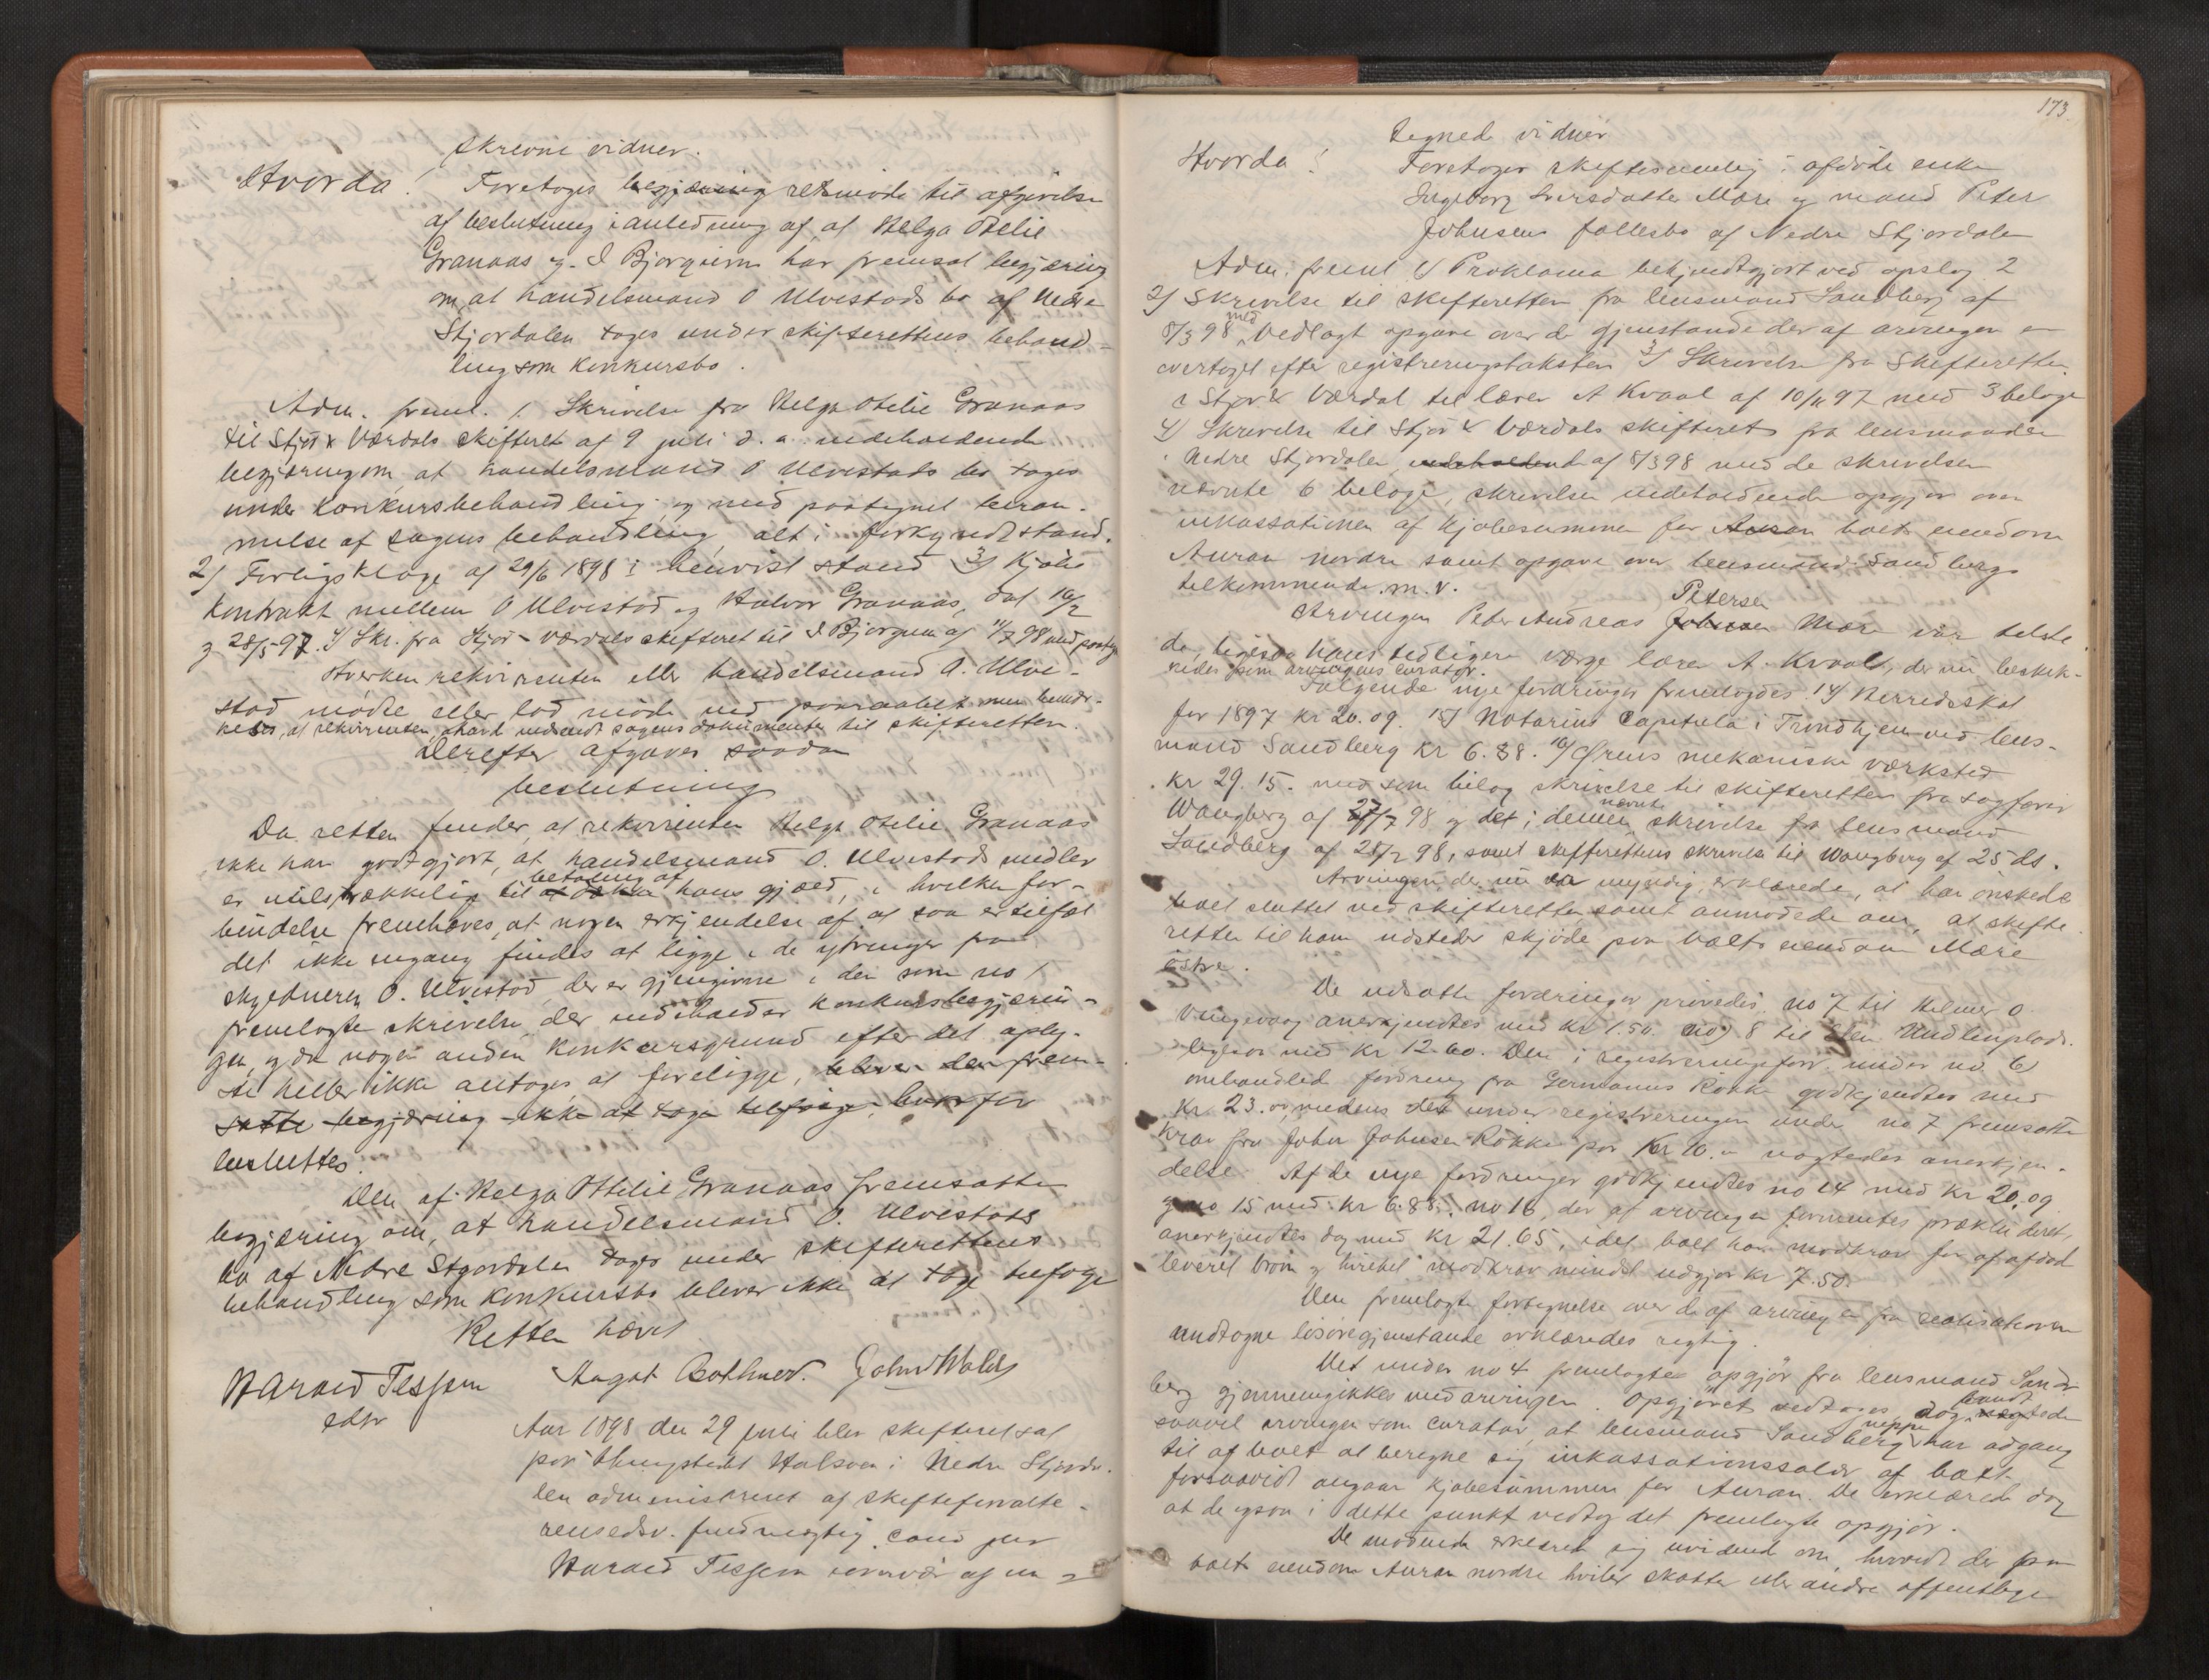 skrevne vidner.
Hvorda!
Foretoges begjæring retsmöde til afgivelse
af beslutning i anledning af, at Helga Otelie
Granaas og I Bjørgum har fremsat begjæring
om, at handelsmand O Ulvestads bo af Nedre
Stjørdalen tages under skifterettens behand=
ling som konkursbo.
Adm. freml. 1. Skrivelse fra Helga Otelie Granaas
til Stjør & Værdals skifteret af 9 juli d. a. indeholdende
begjæring om, at handelsmand O Ulvestads bo tages
under konkursbehandling og med paategnet beram-
melse af sagens behandling, alt i forkyndt stand.
2) Forligsklage af 29/6 1898 i henvist stand 3) Kjøbe
kontrakt mellem O Ulvestad og Halvor Granaas, dat 16/2
og 28/5 97. 4) Skr. fra Stjør- Værdals skifteret til I Bjørgum af 11/7 98 med paateg
Hverken rekvirenten eller handelsmand O. Ulve-
stad mødte eller lod møde ved paaraabet men bemær-
kedes, at rekvirenten havde indsendt sagens dokumenter til skifteretten.
Derefter afgaves saadan
beslutning
Da retten finder, at rekvirenten Helga Otilie Granaas
ikke har godtgjort, at handelsmand O. Ulvestads midler
er utilstrækkelig til at dække betaling af hans gjæld, i hvilken for-
bindelse fremhæves, at nogen erkjendelse af at saa er tilfæl
det ikke engang findes at ligge i de ytringer fra
skyldneren O. Ulvestad, der er gjengivne i den som no 1
fremlagte skrivelse, der indeholder konkursbegjærin-
gen, og da nogen anden konkursgrund efter det oply-
ste heller ikke antages at foreligge, bliver den frem-
satte begjæring ikke at tage tilfølge, hvorfor
besluttes.
Den af Helga Ottilie Granaas fremsatte
begjæring om, at handelsmand O. Ulvestads
bo af Nedre Stjørdalen tages under skifterettens
behandling som konkursbo bliver ikke at tage tilfølge
Retten hævet
Harald Tessem
edsv
August Bothner. John Wolds
Aar 1898 den 29 juli blev skifteret sat
paa thingstedet Halsen i Nedre Stjørda-
len administreret af skifteforvalte-
rens edsv. fuldmægtig, cand jur
Harald Tessem i overvær af un
173
tegnede vidner
Hvorda!
Foretoges skiftesamling i afdøde enke
Ingeborg Iversdatter Mære og mand Peter
Johnsens fællesbo af Nedre Stjørdalen
Adm. freml 1) Proklama bekjendtgjort ved opslag 2
2) Skrivelse til skifteretten fra lensmand Sandberg af
8/3 98 med vedlagt opgave over de gjenstande der af arvingen er
overtaget efter registreringstaksten 3) Skrivelse fra Skifteretten
i Stjør & Værdal til lærer A Kvaal af 10/11 97 med 3 bilage
4) Skrivelse til Stjør & Værdals skifteret fra lensmanden
i Nedre Stjørdalen, indeholdende af 8/3 98 med de skrivelsen
nævnte 6 bilage, skrivelsen indeholdende opgjør over
inkassationen af kjøbesummen for Auran boets eiendom
Auran nordre samt opgave over lensmand Sandbergs
tilkommende m. v.
Arvingen Peter Andreas Johnsen Petersen Mære var tilste
de, ligesaa hans tidligere værge lærer A. Kvaal, der nu beskik-
kedes som arvingens curator.
Følgende nye fordringer fremlagdes. 14) Herredsskat
for 1897 kr 20.09. 15) Notarius Capituli i Trondhjem ved lens-
mand Sandberg kr 6.88. 16) Ørens mekaniske værksted
kr 29.15. med som bilag skrivelse til skifteretten fra sagfører
Wangberg af 27/7 98 og det i denne nævnte skrivelse fra lensmand
Sandberg af 25/2 98, samt skifterettens skrivelse til Wangberg af 25 ds.
Arvingen der nu er myndig, erklærede, at han ønskede
boet sluttet ved skifteretten samt anmodede om, at skifte
retten til ham udsteder skjøde paa boets eiendom Mære
østre.
De udsatte fordringer prøvedes. no 7 til Helmer O.
Vingevaag anerkjendtes med kr 1.50. no 8 til Elen Undlienplads.
ligesaa med kr 12.60. Den i registreringsforr. under no 6)
omhandlede fordring fra Germanus Rokke godkjendtes med
kr. 23.00, medens det under registreringen under no 7 fremsatte
krav fra John Johnsen Rokke paa kr 10.- nægtedes anerkjen-
delse. Af de nye fordringer godkjendtes no 14 med kr 20.09
og no 15 med kr 6.88. no 16, der af arvingen formentes prækluderet,
anerkjendtes dog med kr 21.65, idet boet har modkrav for af afdød
leveret modkrav mindst udgjør kr 7.50.
Den fremlagte fortegnelse over de af arvingen fra realisationen
undtagne løsøregjenstande erklæredes rigtig.
Det under no 4 fremlagte opgjør fra lensmand Sand-
berg gjennemgikkes med arvingen. Opgjøret vedtoges, dog
saavel arvingen som curator, at lensmand Sandberg neppe har adgang
til af boet at beregne sig inkassationssalær af boet
forsaavidt angaar kjøbesummen for Auran. De erklærede dog
at de ogsaa i dette punkt vedtog det fremlagte opgjør.
De mødende erklærede sig uvidende om, hvorvidt der paa
boets eiendom Auran nordre hviler skatter eller andre offentlige